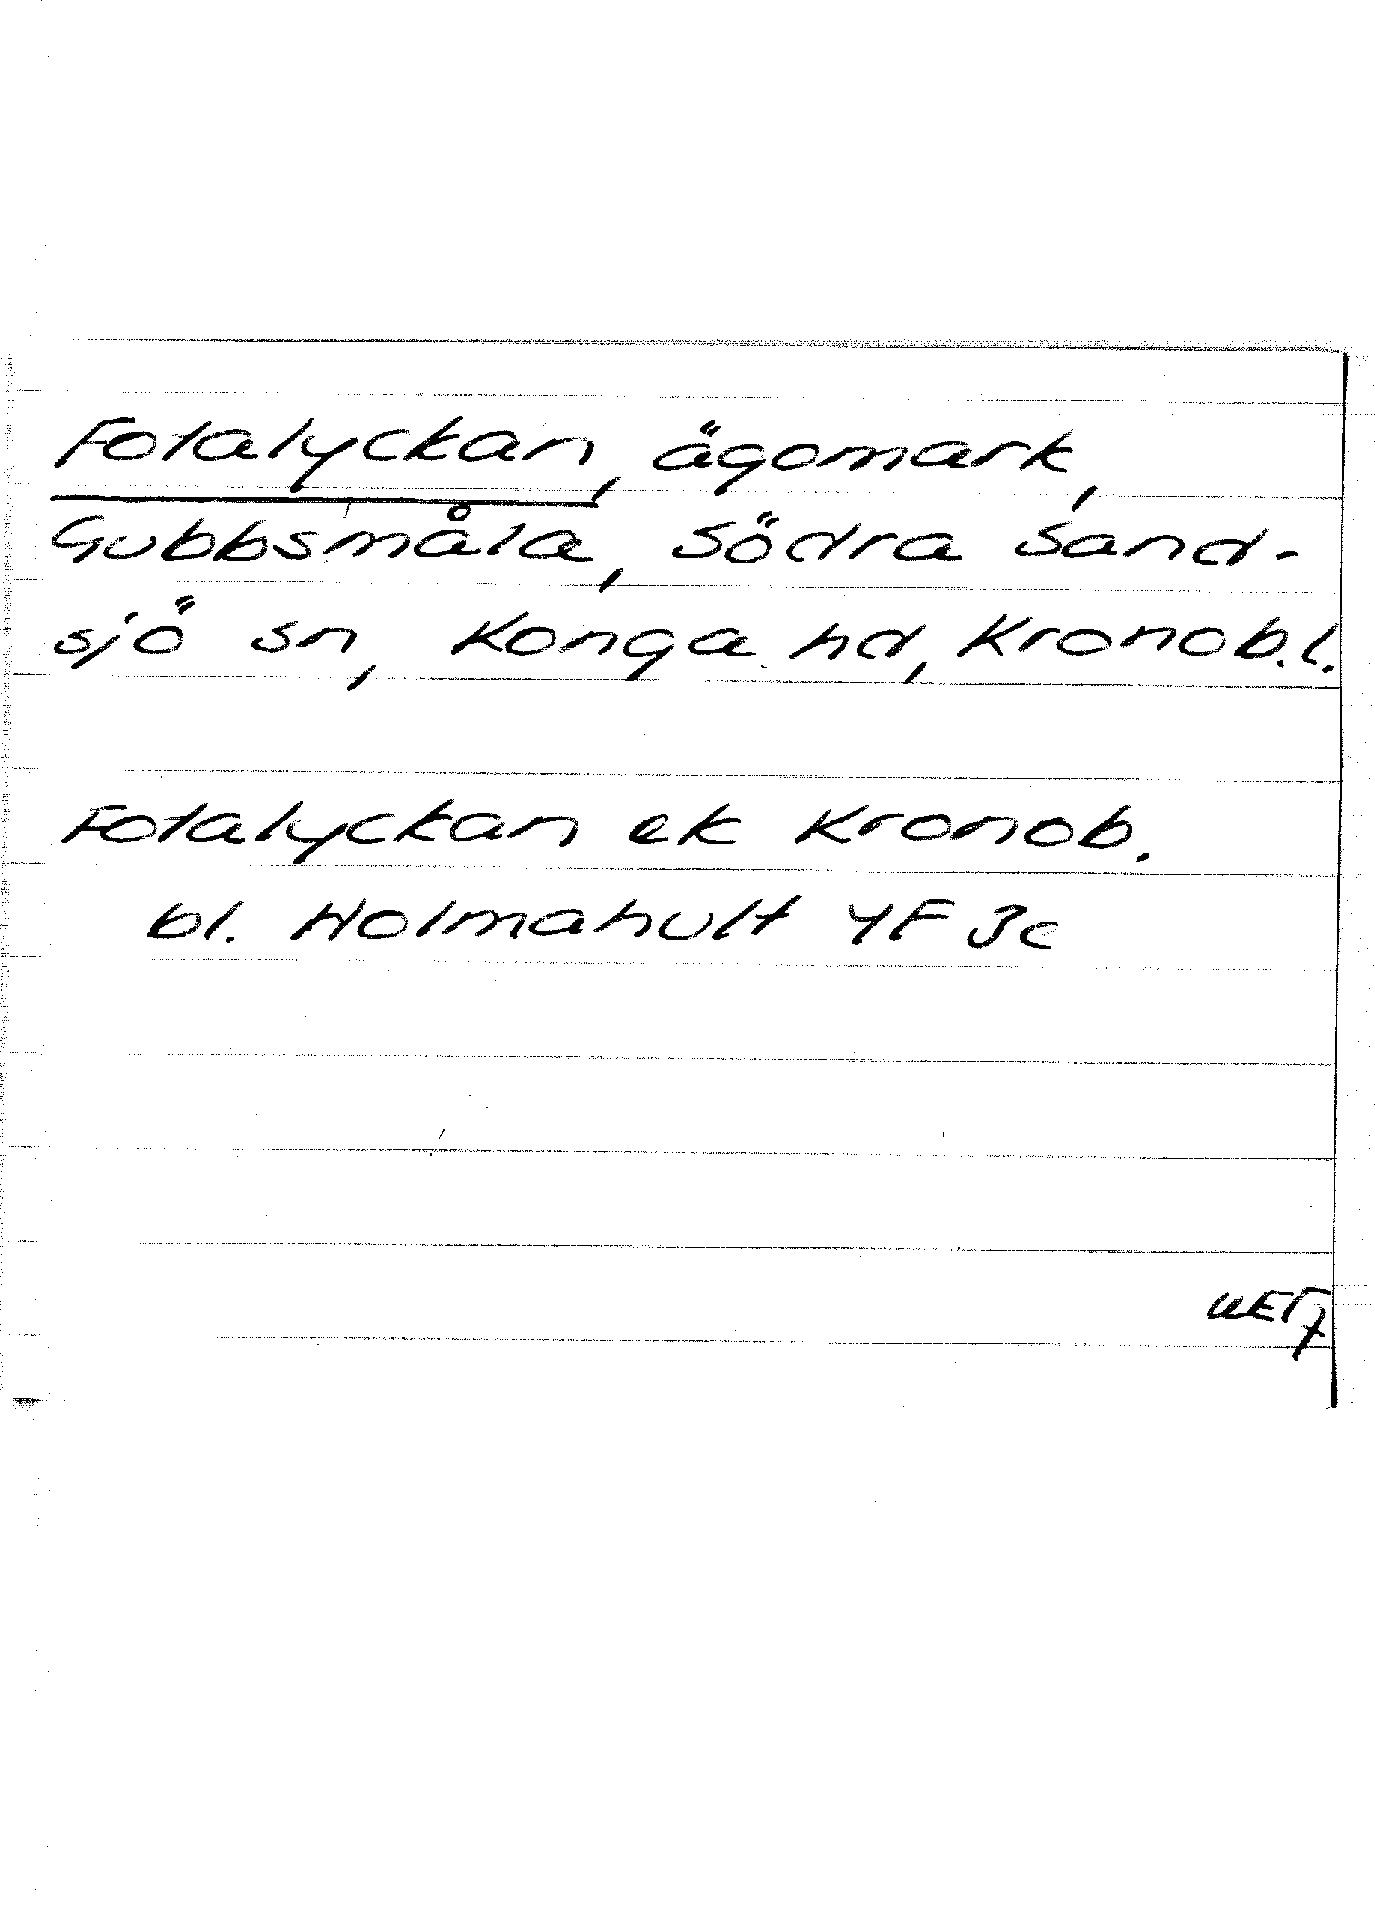 Fotalyckan, ägomark,
Gubbsmåla, Södra Sand-
sjö sn, Konga hd, Kronob.l.
Fotalyckan ek Kronob.
bl. Holmahult 4F 3c